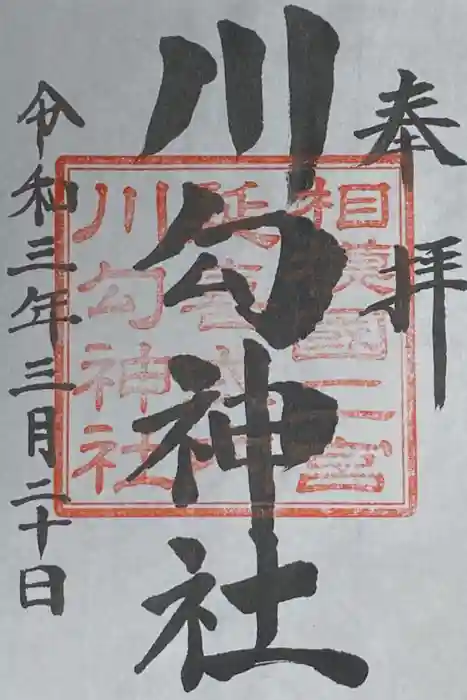 奉拝
川勾神社
令和三年三月二十日
相模國二宮
延喜式内社
川勾神社